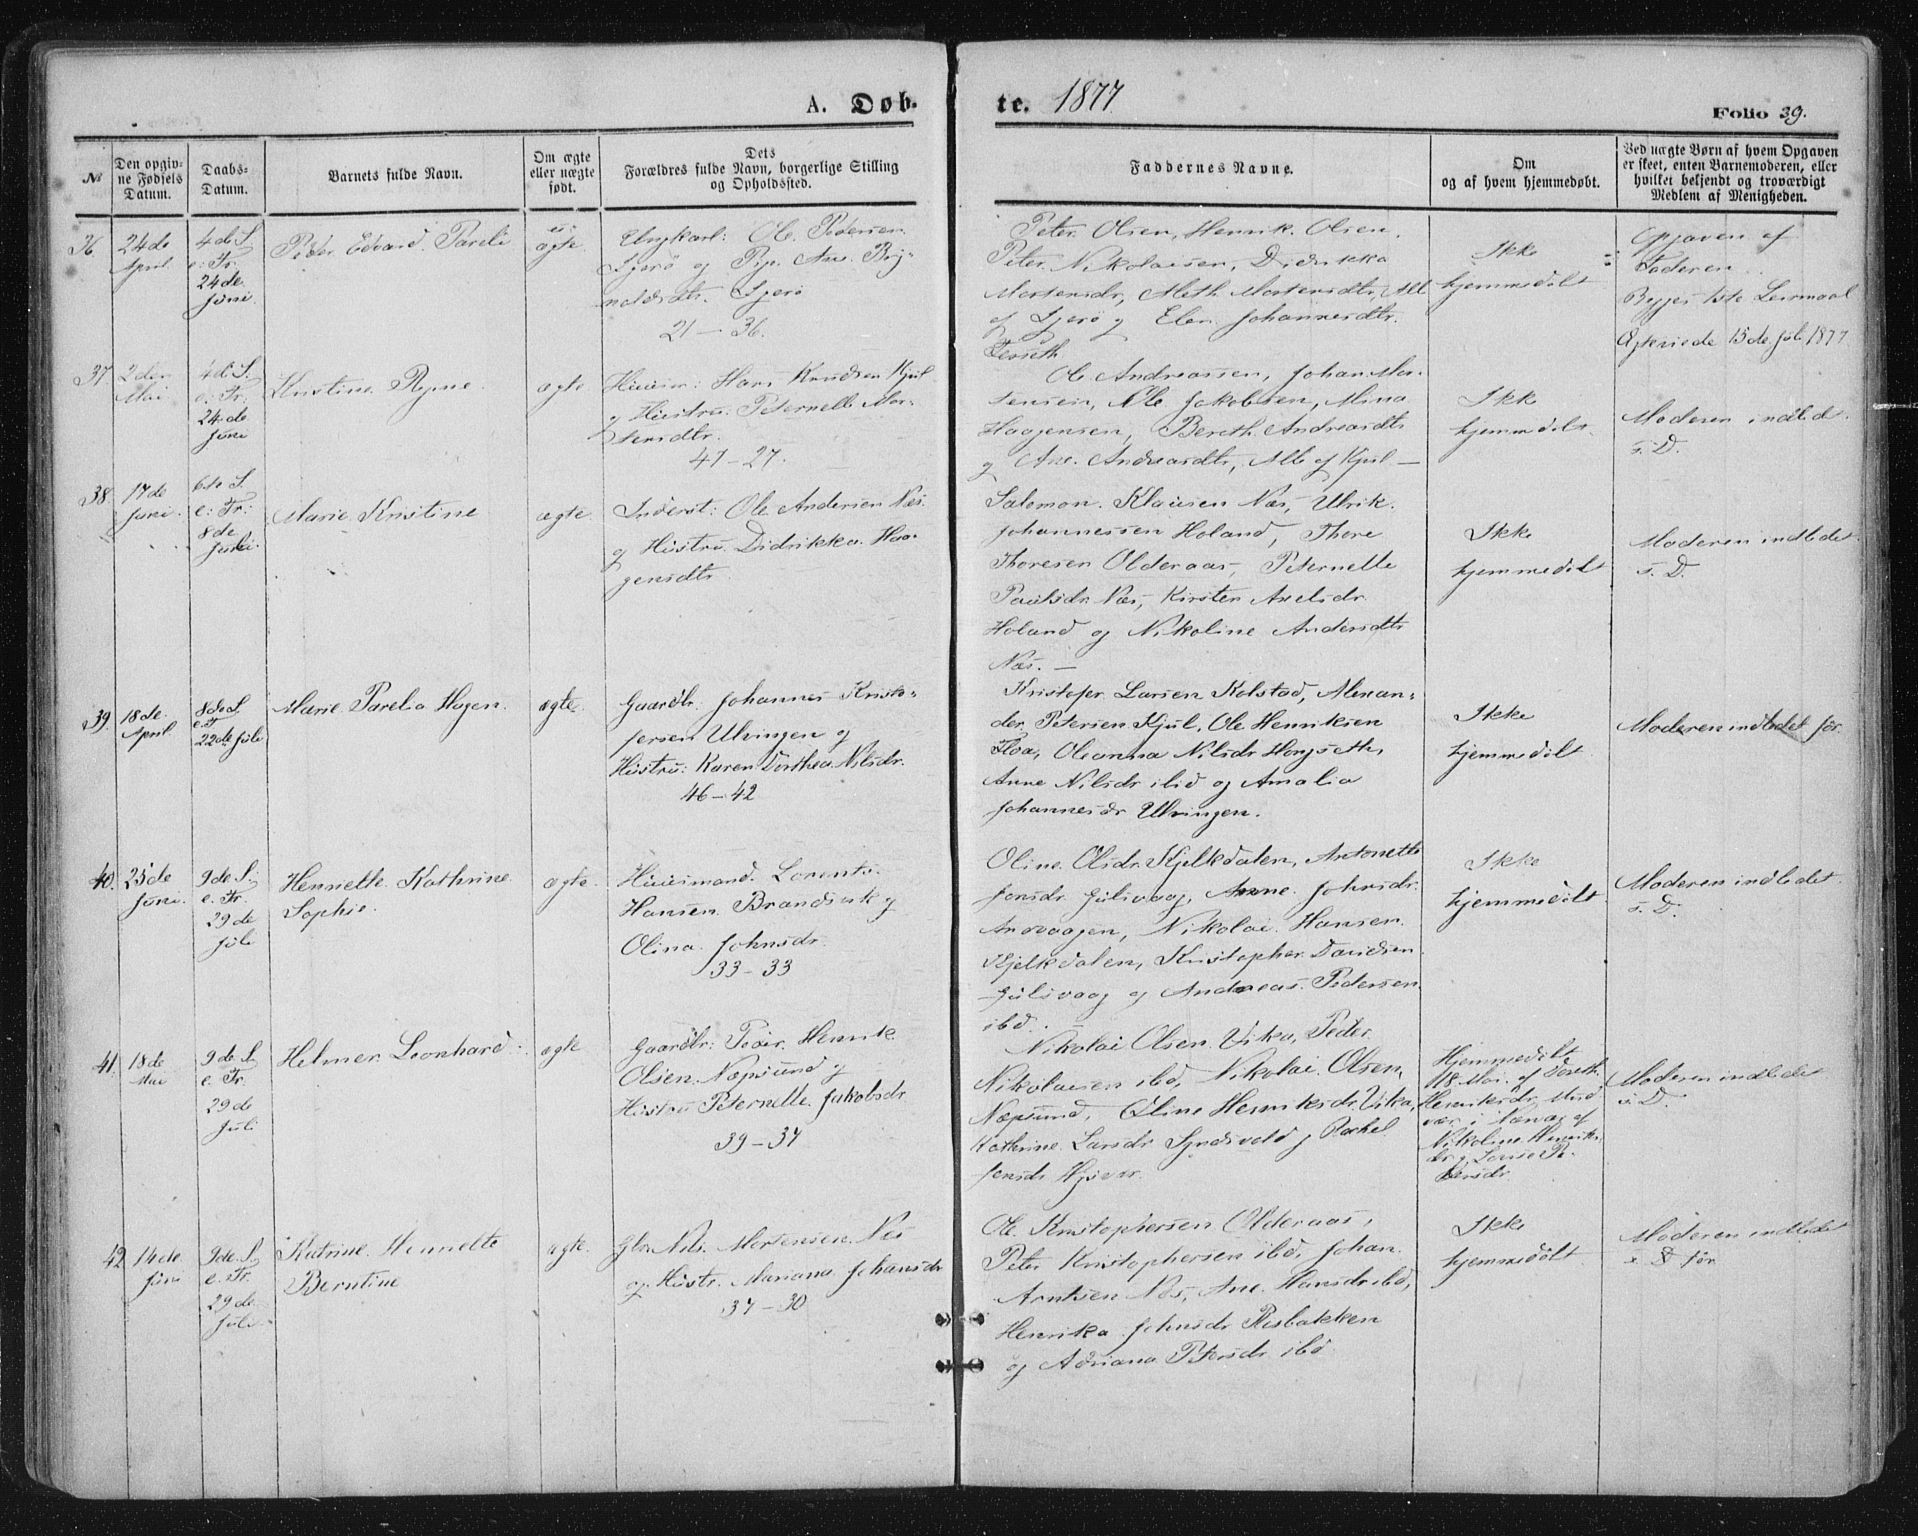 A. Døb-
te. 1877
Folio 39.
№
Den opgiv-
ne Fødsels
Datum.
Daabs-
Datum.
Barnets fulde Navn.
Om ægte
eller uægte
født.
Dets
Forældres fulde Navn, borgerlige Stilling
og Opholdssted.
Faddernes Navne.
Om
og af hvem hjemmedøbt.
Ved uægte Børn af hvem Opgaven
er skeet, enten Barnemoderen, eller
hvilket bekjendt og troværdigt
Medlem af Menigheden.
36.
24de
April
4de S.
e. Tr.
24de
Juni
Peder Edvard Pareli
ægte
Ungkarl: Ole Pedersen
og Pige Ane Bry-
21-36.
Peter Olsen, Henrik Olsen,
Peter Nikolaisen, Didrikka
Mortensdr, Meth Mortensdtr, Alle
og Elen Johannesdtr.
Ikke
hjemmedøbt
Opgaven af
Faderen
15de Juli 1877
37.
2den
Mai
4de S.
e. Tr.
24de
Juni
Kristine
ægte
Huusm: Hans Knudsen Kjul
og Hustru: Peternelle Mor-
tensdtr.
47-27.
Ole Andreassen, Johan Mor-
tensen, Ole Jakobsen, Mina
Haagensen, Bereth Andreasdtr
og Ane Andreasdtr, Alle af Kjul —
Ikke
hjemmedøbt
Moderen indledet
s. D.
38.
17de
Juni
6te S.
e. Tr.
8de
Juli.
Marie Kristine
ægte
Inderst: Ole Andersen Næs
og Hustru Didrikka Haa-
gensdtr.
Salomon Klausen Næs, Ulrik
Johannessen Holand, Thore
Thoresen Olderaas, Peternelle
Paulsdr Næs, Kirsten Axelsdr
Holand og Nikoline Andersdtr
Næs. —
Ikke
hjemmedøbt
Moderen indledet
s. D.
39.
18de
April
8de S.
e. T.
22de Juli
Marie Parelia Hagen.
ægte
Gaardbr. Johannes Kristo-
fersen Ulvingen og
Hustru: Karen Dorthea Nilsdr.
46-42
Kristofer Larsen Kolstad, Alexan-
der Petersen Kjul, Ole Henriksen
Floa, Oleanna Nilsdr Hongseth,
Anne Nilsdr ibid og Amalia
Johannesdr Ulvingen.
Ikke
hjemmedøbt
Moderen indledet før
40.
25de
Juni
9de S.
e. Tr.
29de
Juli
Henriette Kathrine
Sophie.
ægte.
Huusmand Lorents
Hansen Brandsvik og
Olina Johnsdr.
33-33
Oline Olsdr. Kjelkdalen, Antonette
Jonsdr Gulsvaag, Anne Johnsdr.
Nikolai Hansen
Kjelkdalen, Kristopher Davidsen
Gulsvaag og Andreas Pedersen
ibd.
Ikke
hjemmedøbt
Moderen indledet
s. D.
41.
18de
Mai
9de S.
e. Tr.
29de
Juli
Helmer Leonhard
ægte
Gaardbr: Peder Henrik
Olsen Næpsund og
Hustru Peternelle Jakobsdr
39-37
Nikolai Olsen Vika, Peder
Nikolaisen ibd, Nikolai Olsen,
Næpsund, Oline Henriksdr. Vika,
Kathrine Larsdr og Rachel
Jensdr
Hjemmedøbt
18 Mai af Dorth.
Henriksdr
Nærvær af
Nikoline Henriks-
dr og Pe-
dersdr
Moderen indledet
s. D.
42
14de
Juni
9de S.
e. Tr.
29de
Juli
Katrine Henriette
Berntine
ægte.
Gbr. Nils Mortensen Næs
og Hustr. Mariana Johansdr
37-30
Ole Kristophersen Olderaas,
Peter Kristophersen ibd, Johan
Arntsen Næs, Ane Hansdr ibd,
Henrika Johnsdr Risbakken
og Adriana Petersdr ibd
Ikke
hjemmedøbt
Moderen indledet
før